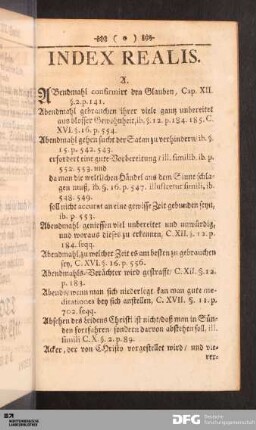 ( * )
INDEX REALIS.
A.
ABendmahl confirmirt den Glauben, Cap. XII.
§. 2. p. 141.
Abendmahl gebrauchen ihrer viele gantz unbereitet
aus blosser Gewohnheit, ib. §. 12. p. 184. 185. C.
XVI. §. 16. p. 554.
Abendmahl gehen sucht der Satan zu verhindern, ib. §.
15. p. 542. 543.
erfordert eine gute Vorbereitung / ill. simili b. ib. p.
552. 553. und
da man die weltlichen Händel aus dem Sinne schla-
gen muß, ib. §. 16. p. 547. illustretur simili, ib.
548. 549.
soll nicht accurat an eine gewisse Zeit gebunden seyn,
ib. p. 553.
Abendmahl geniessen viel unbereitet und unwürdig,
und woraus dieses zu erkennen, C. XII. §. 12. p.
184. seqq.
Abendmahl, zu welcher Zeit es am besten zu gebrauchen
sey, C. XVI. §. 16. p. 556.
Abendmahls-Verächter wird gestrafft, C. XII. §. 12.
p. 183.
Abends, wenn man sich niederlegt, kan man gute me-
ditationes bey sich anstellen, C. XVII. §. 11. p.
702. seqq.
Absehen des Leidens Christi ist nicht, daß man in Sün-
den fortfahren, sondern darvon abstehen soll, ill.
simili C. X. §. 2. p. 89.
Acker, der von Christo vorgestellet wird / und vie-
rer-
DFG
Deutsche
Forschungsgemeinschaft